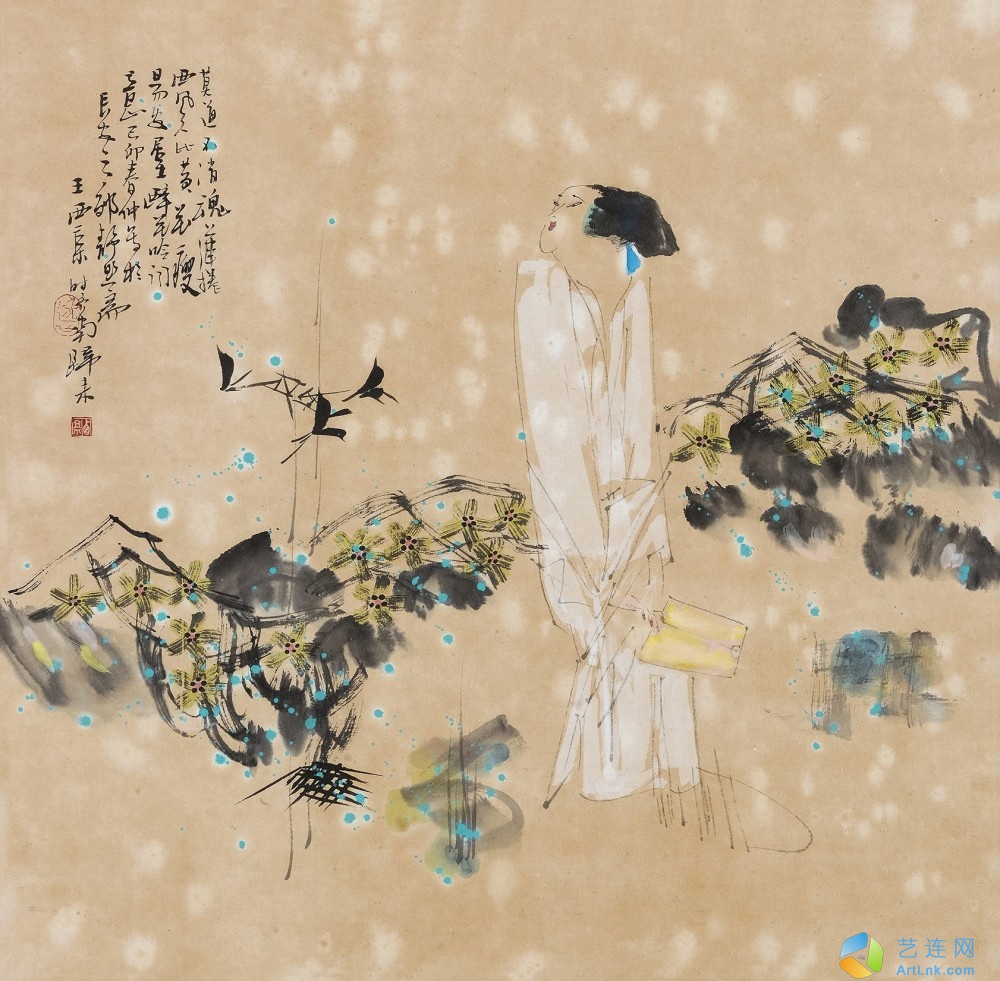 莫道不消魂簾捲
西风人比黄花瘦
易安居士醉花吟词
己卯春仲写於
长安之郊静
王西京 时客南归来
艺连网
ArtLnk.com